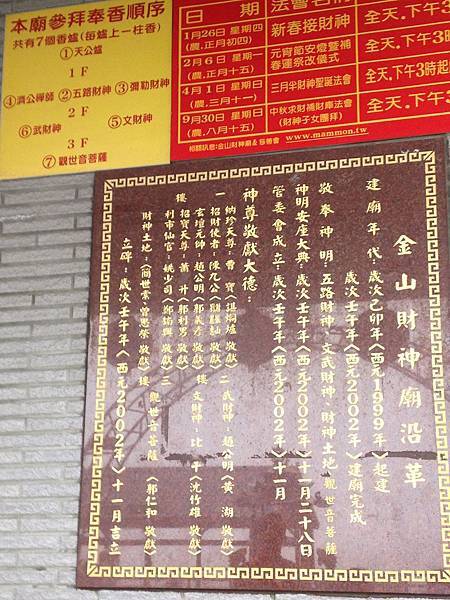 本廟參拜奉香順序
共有7個香爐(每爐上一柱香)
①天公爐
1F
④濟公禪師 ②五路財神 ③彌勒財神
2F
⑥武財神 ⑤文財神
3F
⑦觀世音菩薩
日期 法會名稱
1月26日 星期四
(農,正月初四)
新春接財神
全天,下午3
2月6日 星期一
(農,正月十五)
元宵節安燈暨補
春運祭改儀式
全天.下午3時
4月1日 星期日
(農,三月十一)
三月半財神聖誕法會
全天,下午3時起
9月30日 星期日
(農,八月十五)
中秋求財補財庫法會
(財神子女團拜)
全天.下午3
相關訊息:金山財神廟&慈善會 www.mammon.tw
金山財神廟沿革
建廟年代:歲次己卯年〈西元1999年〉起建
歲次壬午年〈西元2002年〉建廟完成
敬奉神明:五路財神.文武財神.財神土地.觀世音菩薩
神明安座大典:歲次壬午年〈西元2002年〉十一月二十八日
管委會成立:歲次壬午年〈西元2002年〉十一月
神尊敬獻大德:
納珍天尊:曹寶
二 武財神:趙公明〈黃湖敬獻〉
一 招財使者:陳九公
樓 玄壇元帥:趙公明
樓 文財神:比干〈沈竹雄敬獻〉
招寶天尊:蕭升〈郭利男敬獻〉
利市仙官:姚少司
三
財神土地:〈簡世棠.曾恩榮敬獻〉樓 觀世音菩薩〈郭仁和敬獻〉
立碑:歲次壬午年〈西元2002年〉十一月吉立